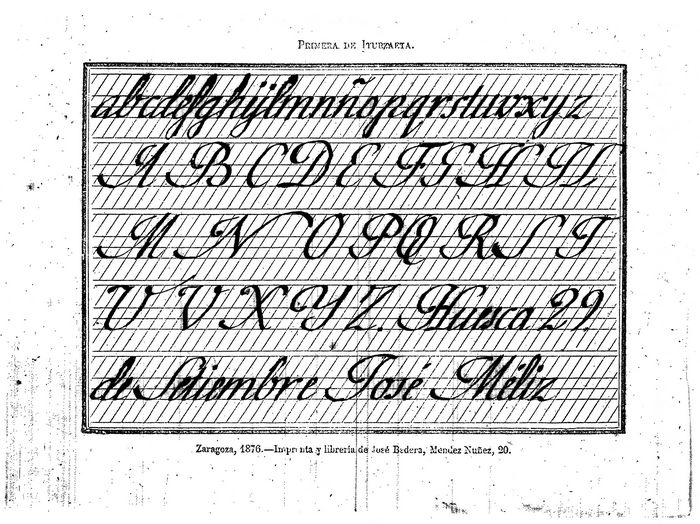 PRIMERA DE ITURZAETA.
abcdefghijlmnñopqrstuvxyz
A B C D E F G H I L
M N O P Q R S T
U V X Y Z. Huesca 29.
de Setiembre José Méliz
Zaragoza, 1876.—Imprenta y librería de José Bedera, Mendez Nuñez, 20.